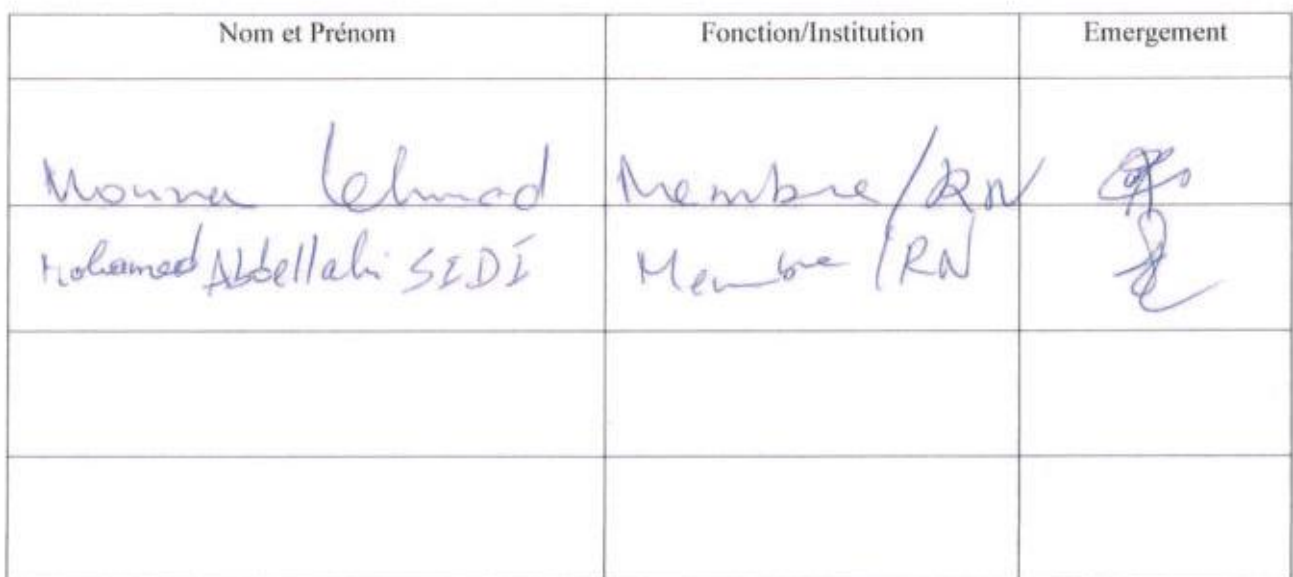 Nom et Prénom Fonction/Institution Emergement
Mouna Lehmad Membre/RN
Mohamed Abdellahi SIDI Membre/RN